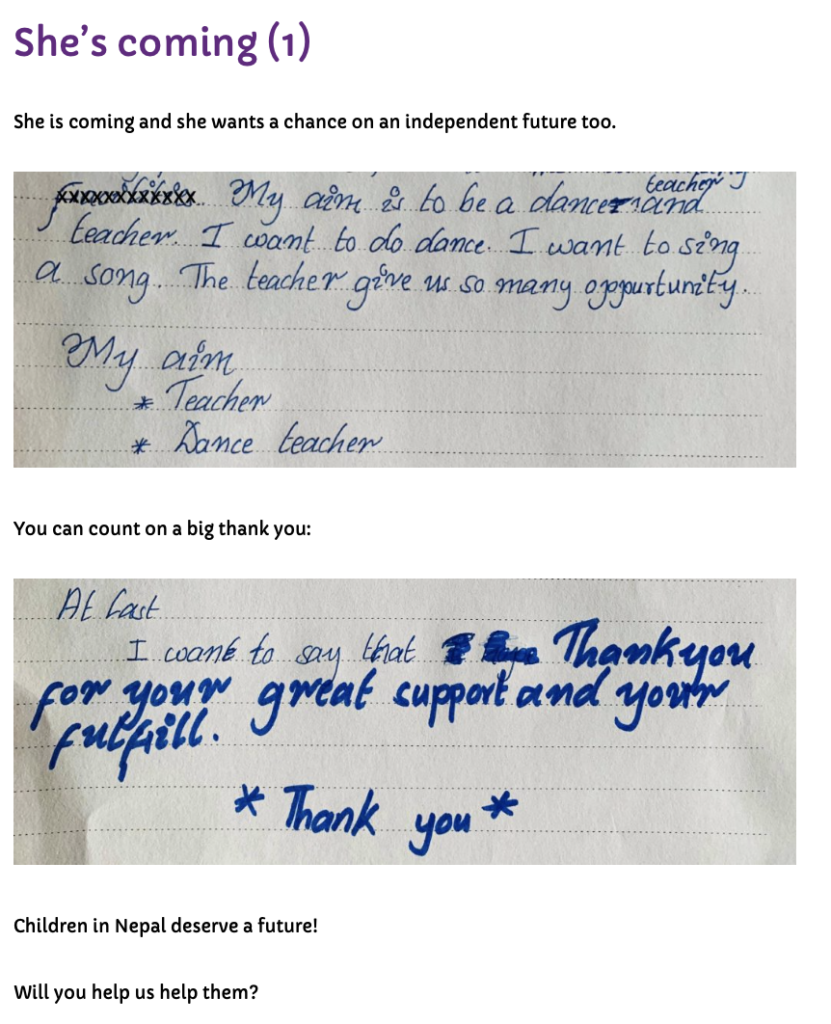 She's coming (1)
She is coming and she wants a chance on an independent future too.
teacher
My aim is to be a dancer and
teacher. I want to do dance. I want to sing
a song. The teacher give us so many oppourtunity.
My aim
* Teacher
* Dance teacher
You can count on a big thank you:
At last
I want to say that Thankyou
for your great support and your
fulfill.
* Thank you *
Children in Nepal deserve a future!
Will you help us help them?